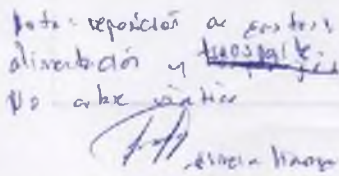 Nota: reposición de gastos,
alimentación y transporte.
No cubre viático